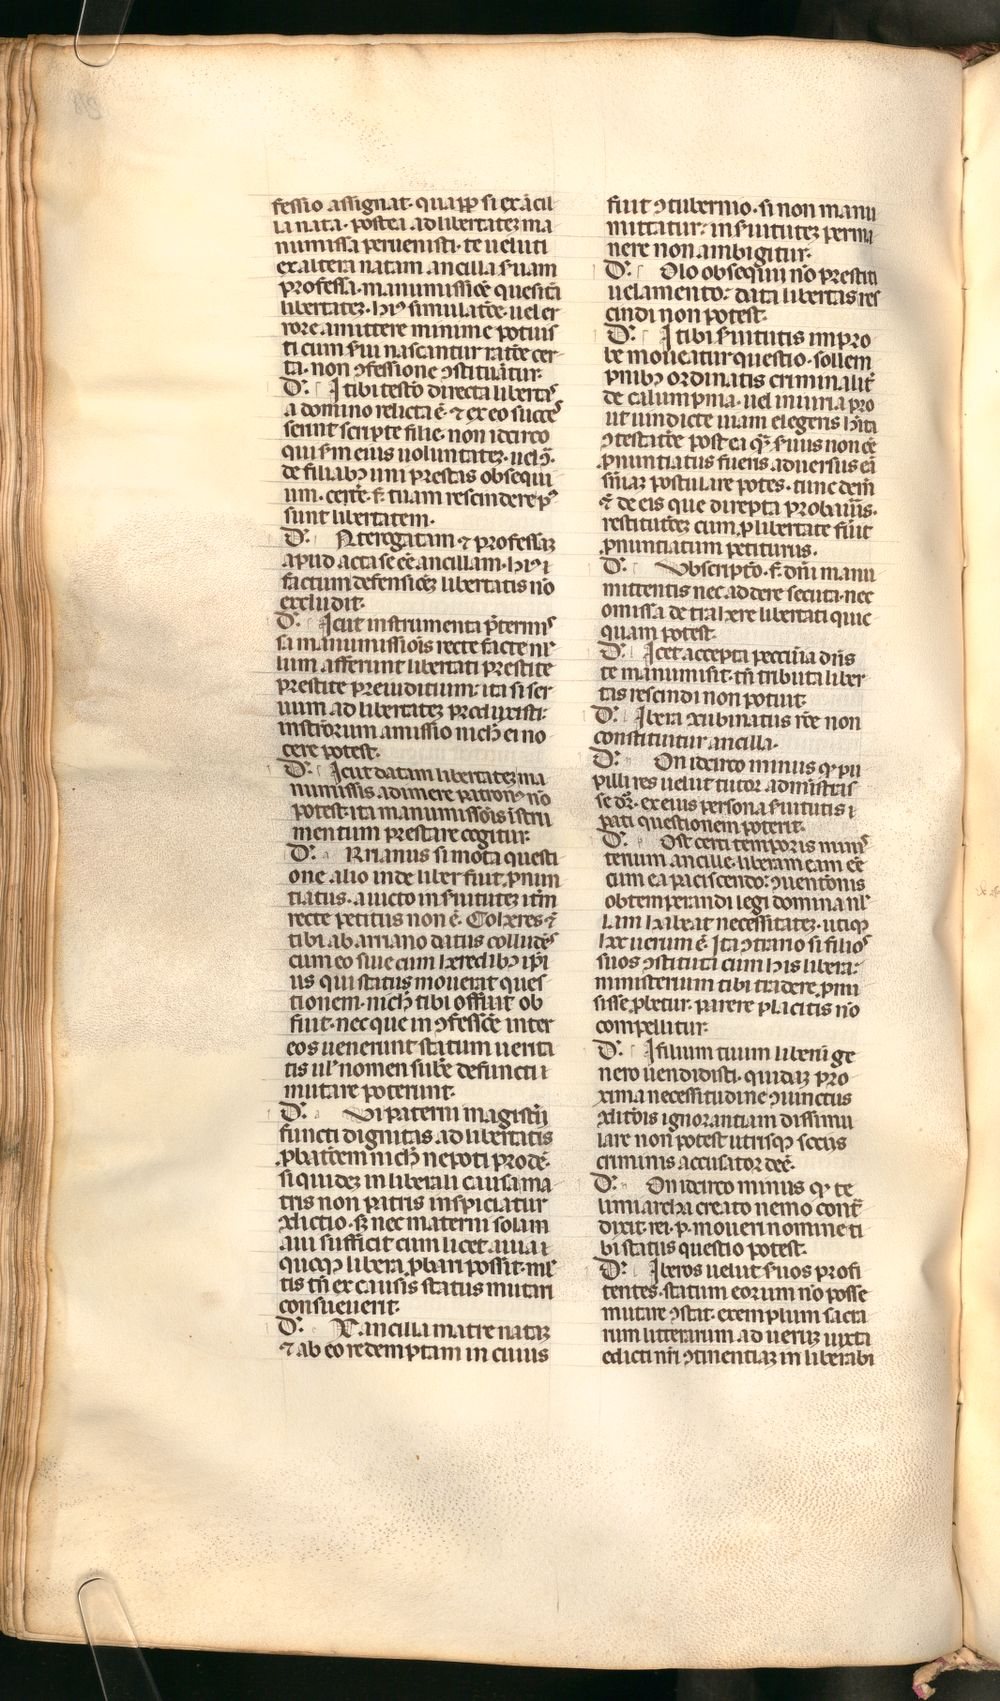 fessio assignat. quapp̱ si ex ācil
la nata. postea ad libertateʒ ma
numissa peruenisti. te ueluti
ex altera natam ancilla s̄uam
professa. manumissiōē quesitā
libertateʒ. hi᷒ simulatōe. uel er
rore amittere minime potius
ti cum s̄ui nascantur ratōe cer
ta. non ꝯfessione ꝯstituātur.
D'. I tibi testō directa libertas
a domino relicta ē. ⁊ ex eo succes
serunt scripte filie. non idcirco
qui s̄m eius uoluntateʒ. uel ꝯ̄.
de filiabʒ uni prestas obsequi
um. certe. s̄. tuam rescindere pos
sunt libertatem.
D'. Nterogatam ⁊ professaʒ
apud acta se eē ancillam. hi᷒ i
factum defensiōeʒ libertatis nō
excludit.
D'. Icut instrumenta p̄termis
sa manumissiōis recte facte nl᷒
lum afferunt libertati prestite
prestite preiuditium: ita si ser
uum ad libertateʒ produxisti.
instrōrum amissio nich̄ ei no
cere potest.
D'. Icut datam libertateʒ ma
numissis adimere patron᷒ nō
potest. ita manumissōis īstru
mentum prestare cogitur.
D'. Rrianus si mota questi
one alio inde liber fuit ꝓnun
tiatus. a uicto in s̄uituteʒ itm̄
recte petitus non ē. Coheres ⁊
tibi ab arriano datus colludēs
cum eo siue cum heredibʒ ip̄i
us qui status mouerat ques
tionem. nich̄ tibi offuit ob
fuit. nec que in ꝯfessiōē inter
eos uenerunt statum uerita
tis ul᷒ nomen subē defuncti i
mutare poterunt.
D'. Vi paterni magistrī
functi dignitas ad libertatis
ꝓbatōem nich̄ nepoti prodē.
siquideʒ in liberali causa ma
tris non patris inspiciatur
ꝯdictio. sʒ nec materni solam
aui sufficit cum licet auia i
quoqʒ libera ꝓbari possit. ml᷒
tis tn̄ ex causis status mutari
consueuerit.
D'. X ancilla matre nataʒ
⁊ ab eo redemptam in cuius
fiuit ꝯtubernio. si non manu
mittatur: in s̄uituteʒ perma
nere non ambigitur.
D'. Olo obsequiū nō prestiti
uelamento: data libertas res
cindi non potest.
D'. I tibi s̄uitutis impro
be moueatur questio. sollem
pnibʒ ordinatis criminalit̄
de calumpnia. uel iniuria pro
ut uindicte uiam elegeris lit̄a
ꝯtestatōe post ei qʒ s̄uus non eē
ꝓnuntiatus fueris aduersus eū
sn̄iaʒ postulare potes. tunc dem̄
⁊ de eis que direpta probauīs.
restitutōeʒ cum ꝓ libertate fūit
ꝓnuntiatum petiturus.
D'. Vbscriptō. s̄. dn̄i manu
mittentis nec addere secuta. nec
omissa de trahere libertati quic
quam potest.
D'. Icet accepta peccūia dn̄s
te manumisit. tn̄ tributa liber
tas rescindi non potuit.
D'. Ibera ꝯcubinatus rōe non
constituitur ancilla.
D'. On idcirco minus qʒ pu
pilli res uelut tutor admīstras
se dr̄. ex eius persona s̄uitutis i
pati questionem poterit.
D'. Ost certi temporis minis
terium ancille. liberam eam eē
cum ea paciscendo: ꝯuentōnis
obtemperandi legi domina nl᷒
lam habeat necessitateʒ. utiqʒ
hec uerum ē. Ita ꝯtrario si filios
suos ꝯstituti cum his libera:
ministerium tibi tradere ꝓmi
sisse ꝓbetur. parere placitis nō
compellitur.
D'. I filium tuum liberū ge
nero uendidisti. quidaʒ pro
xima necessitudine ꝯiunctus
ꝯditōis ignorantiam dissimu
lare non potest utrisqʒ socius
criminis accusator deē.
D'. On idcirco minus qʒ te
limiarcha creato nemo cont̄
dixit. rei. p. moueri nomine ti
bi status questio potest.
D'. Iberos uelut s̄uos profi
tentes. statum eorum nō posse
mutare ꝯstat. exemplum sacra
rum litterarum ad ueruʒ iuxta
edicti nr̄i ꝯtinentiaʒ in liberabi